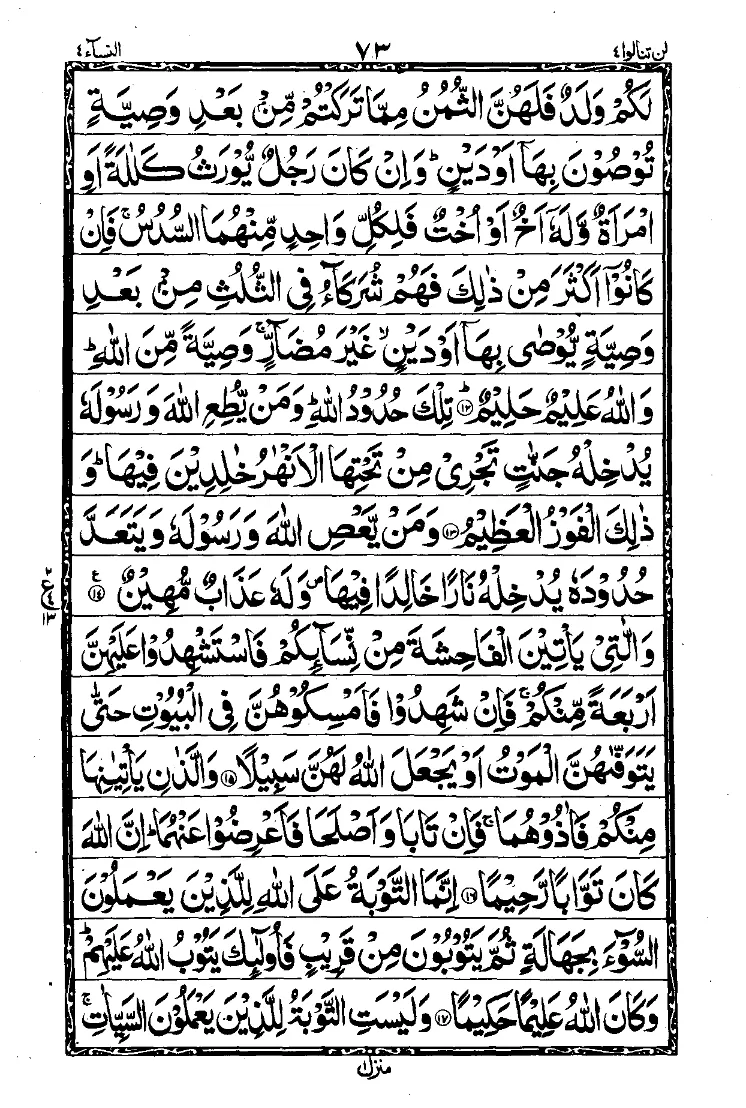 لن تنالوا ٤ ٧٣ النسآء ٤
لَكُمْ وَلَدٌ فَلَهُنَّ الثُّمُنُ مِمَّا تَرَكْتُمْ مِّنْۢ بَعْدِ وَصِيَّةٍ
تُوْصُوْنَ بِهَاۤ اَوْ دَيْنٍ ؕ وَاِنْ كَانَ رَجُلٌ يُّوْرَثُ كَلٰلَةً اَوِ
امْرَاَةٌ وَّلَهٗۤ اَخٌ اَوْ اُخْتٌ فَلِكُلِّ وَاحِدٍ مِّنْهُمَا السُّدُسُ ۚ فَاِنْ
كَانُوْۤا اَكْثَرَ مِنْ ذٰلِكَ فَهُمْ شُرَكَآءُ فِى الثُّلُثِ مِنْۢ بَعْدِ
وَصِيَّةٍ يُّوْصٰى بِهَاۤ اَوْ دَيْنٍ ۙ غَيْرَ مُضَآرٍّ ۚ وَصِيَّةً مِّنَ اللّٰهِ ؕ
وَاللّٰهُ عَلِيْمٌ حَلِيْمٌ ؕ ﴿۱۲﴾ تِلْكَ حُدُوْدُ اللّٰهِ ؕ وَمَنْ يُّطِعِ اللّٰهَ وَرَسُوْلَهٗ
يُدْخِلْهُ جَنّٰتٍ تَجْرِىْ مِنْ تَحْتِهَا الْاَنْهٰرُ خٰلِدِيْنَ فِيْهَا ؕ وَ
ذٰلِكَ الْفَوْزُ الْعَظِيْمُ ﴿۱۳﴾ وَمَنْ يَّعْصِ اللّٰهَ وَرَسُوْلَهٗ وَيَتَعَدَّ
حُدُوْدَهٗ يُدْخِلْهُ نَارًا خَالِدًا فِيْهَا ۪ وَلَهٗ عَذَابٌ مُّهِيْنٌ ﴿۱۴﴾ ع
وَالّٰتِىْ يَاْتِيْنَ الْفَاحِشَةَ مِنْ نِّسَآئِكُمْ فَاسْتَشْهِدُوْا عَلَيْهِنَّ
اَرْبَعَةً مِّنْكُمْ ۚ فَاِنْ شَهِدُوْا فَاَمْسِكُوْهُنَّ فِى الْبُيُوْتِ حَتّٰى
يَتَوَفّٰىهُنَّ الْمَوْتُ اَوْ يَجْعَلَ اللّٰهُ لَهُنَّ سَبِيْلًا ﴿۱۵﴾ وَالَّذٰنِ يَاْتِيٰنِهَا
مِنْكُمْ فَاٰذُوْهُمَا ۚ فَاِنْ تَابَا وَاَصْلَحَا فَاَعْرِضُوْا عَنْهُمَا ؕ اِنَّ اللّٰهَ
كَانَ تَوَّابًا رَّحِيْمًا ﴿۱۶﴾ اِنَّمَا التَّوْبَةُ عَلَى اللّٰهِ لِلَّذِيْنَ يَعْمَلُوْنَ
السُّوْٓءَ بِجَهَالَةٍ ثُمَّ يَتُوْبُوْنَ مِنْ قَرِيْبٍ فَاُولٰٓئِكَ يَتُوْبُ اللّٰهُ عَلَيْهِمْ ؕ
وَكَانَ اللّٰهُ عَلِيْمًا حَكِيْمًا ﴿۱۷﴾ وَلَيْسَتِ التَّوْبَةُ لِلَّذِيْنَ يَعْمَلُوْنَ السَّيِّاٰتِ ۚ
منزل ۱